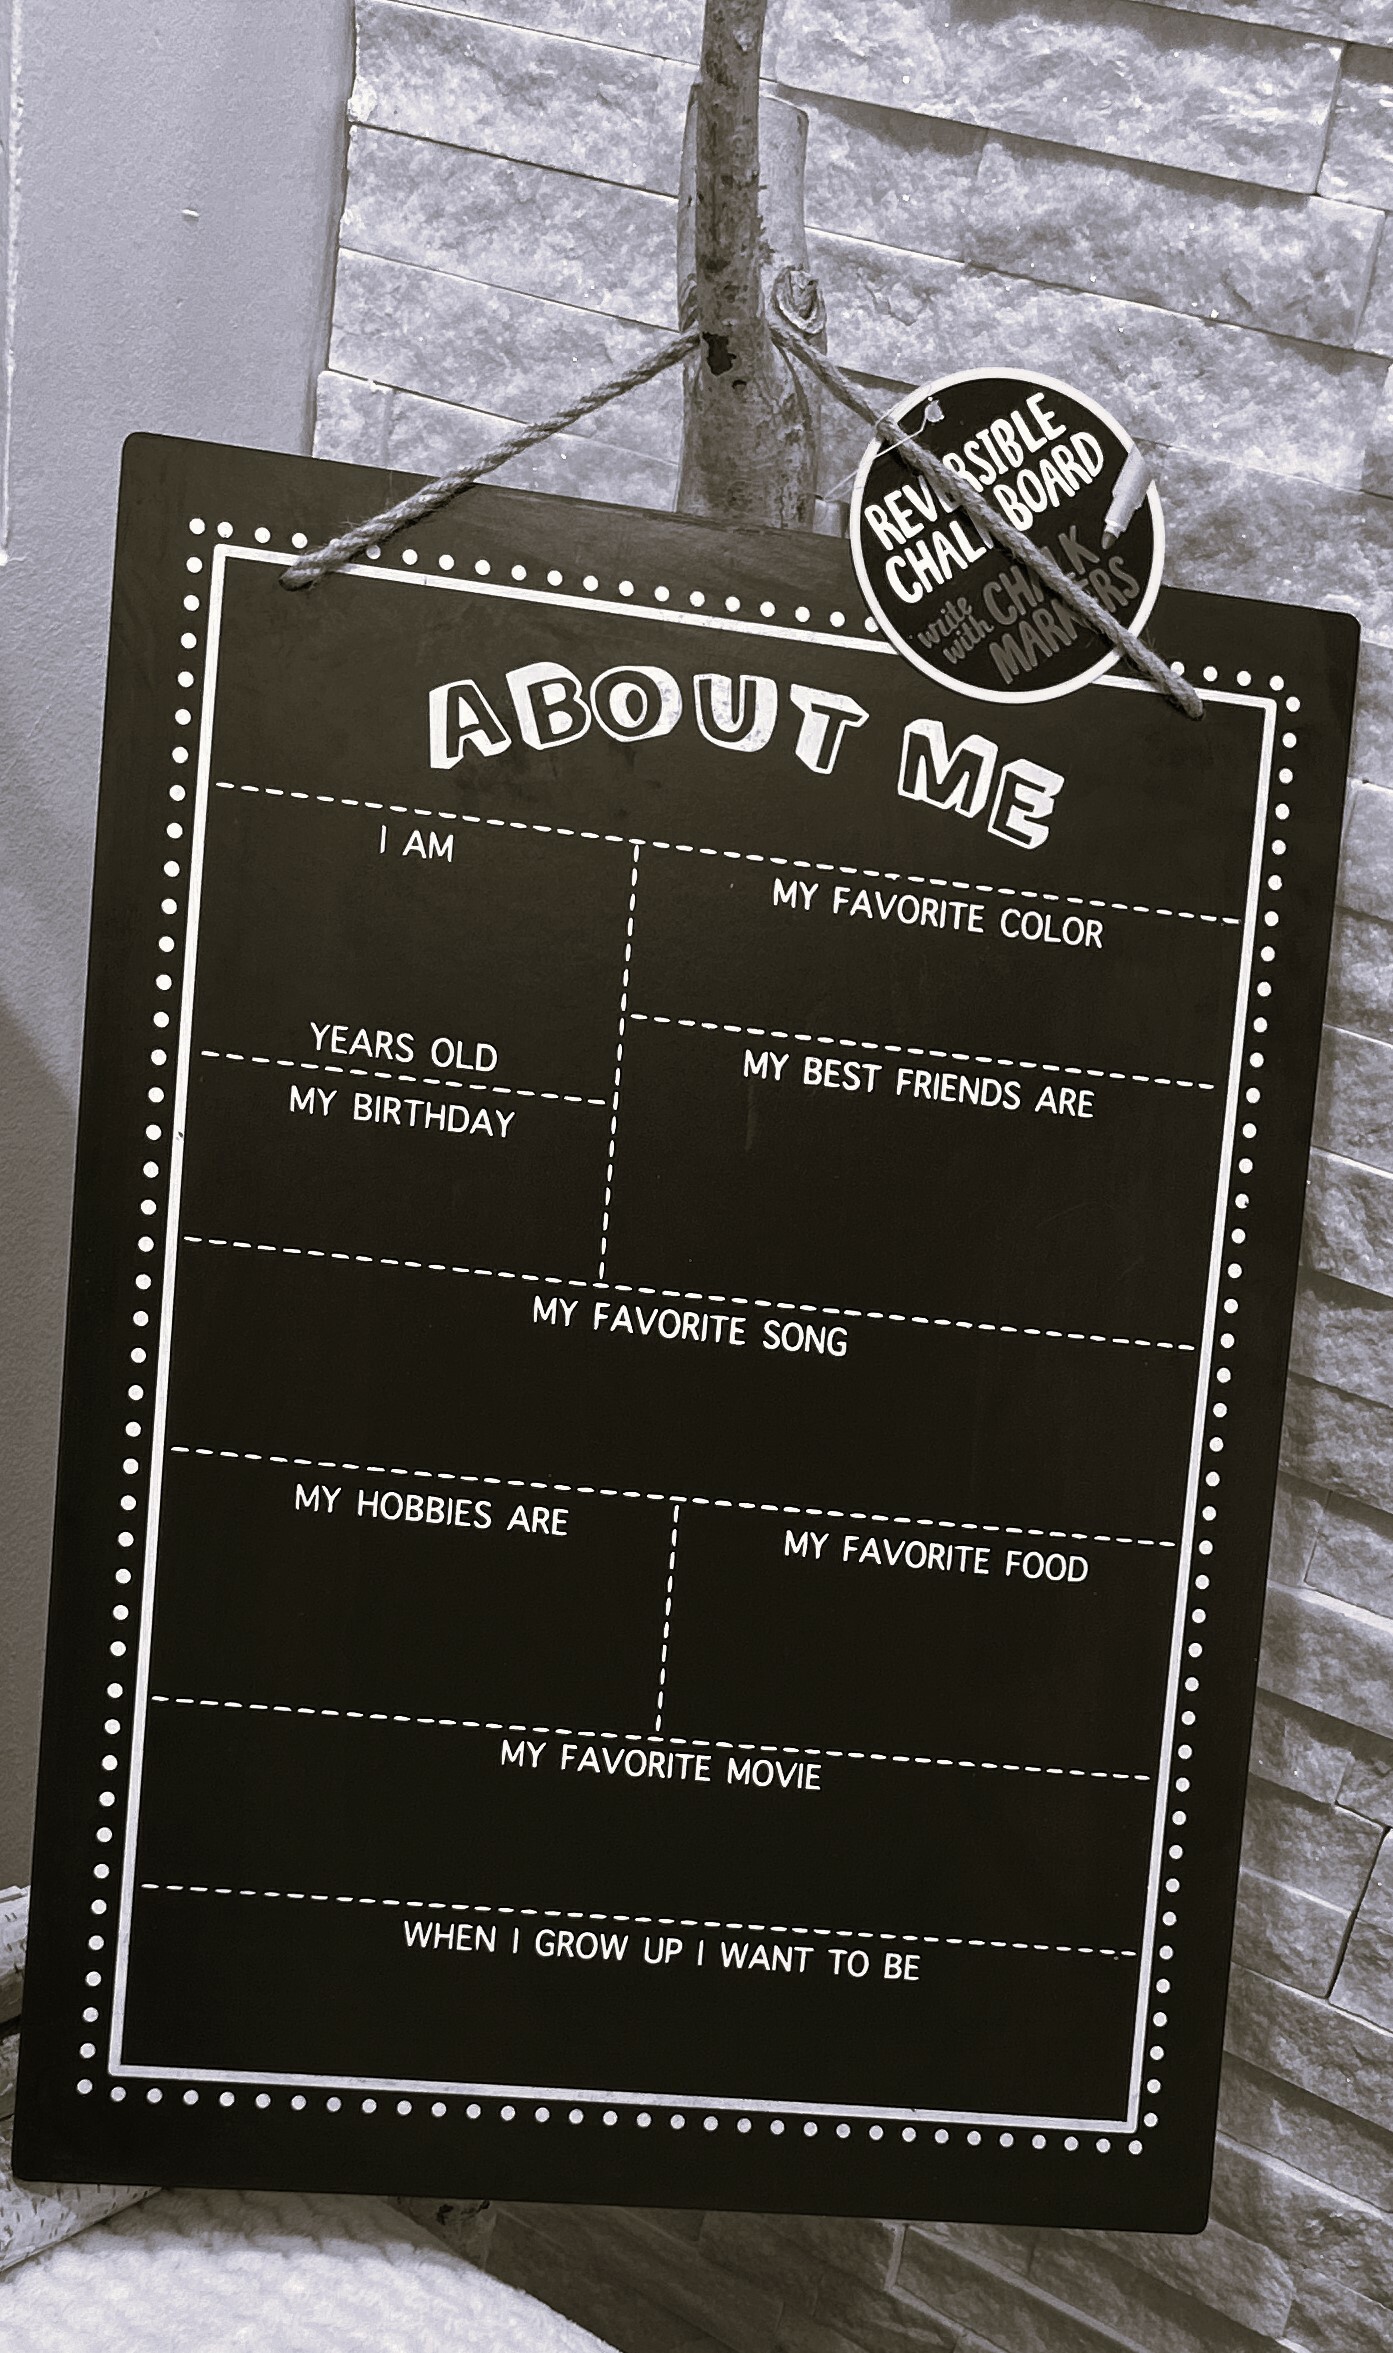 REVERSIBLE
CHALKBOARD
write with CHALK
MARKERS
ABOUT ME
I AM
YEARS OLD
MY FAVORITE COLOR
MY BIRTHDAY
MY BEST FRIENDS ARE
MY FAVORITE SONG
MY HOBBIES ARE
MY FAVORITE FOOD
MY FAVORITE MOVIE
WHEN I GROW UP I WANT TO BE